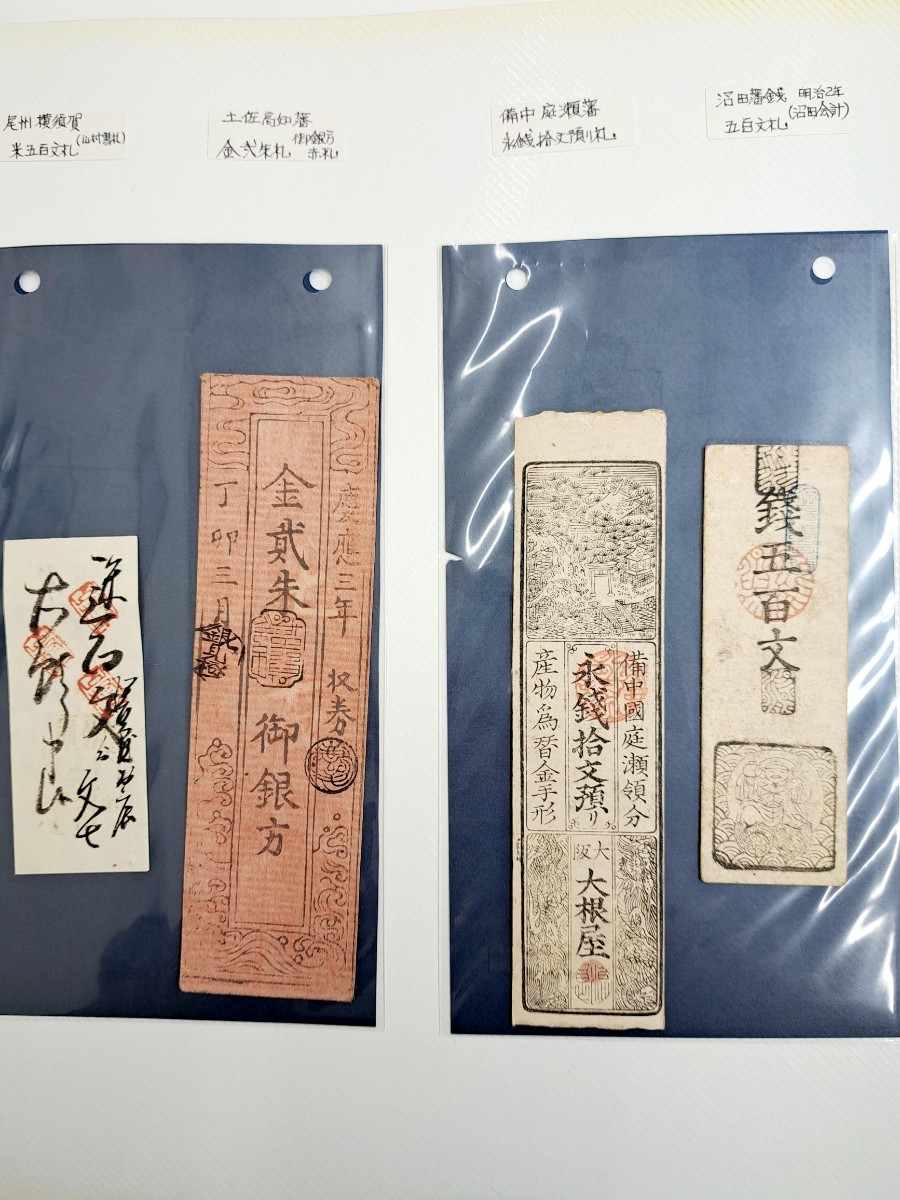 尾州 横須賀
米五百文札 (山村書札)
土佐高知藩
金弐朱札 御銀方 赤札
備中 庭瀬藩
永銭拾文預リ札
沼田藩銭 明治2年
五百文札 (沼田会計)
慶應三年
金貳朱
御銀方
丁卯三月
備中國庭瀬領分
永錢拾文預リ
産物為替金手形
大阪
大根屋
錢五百文